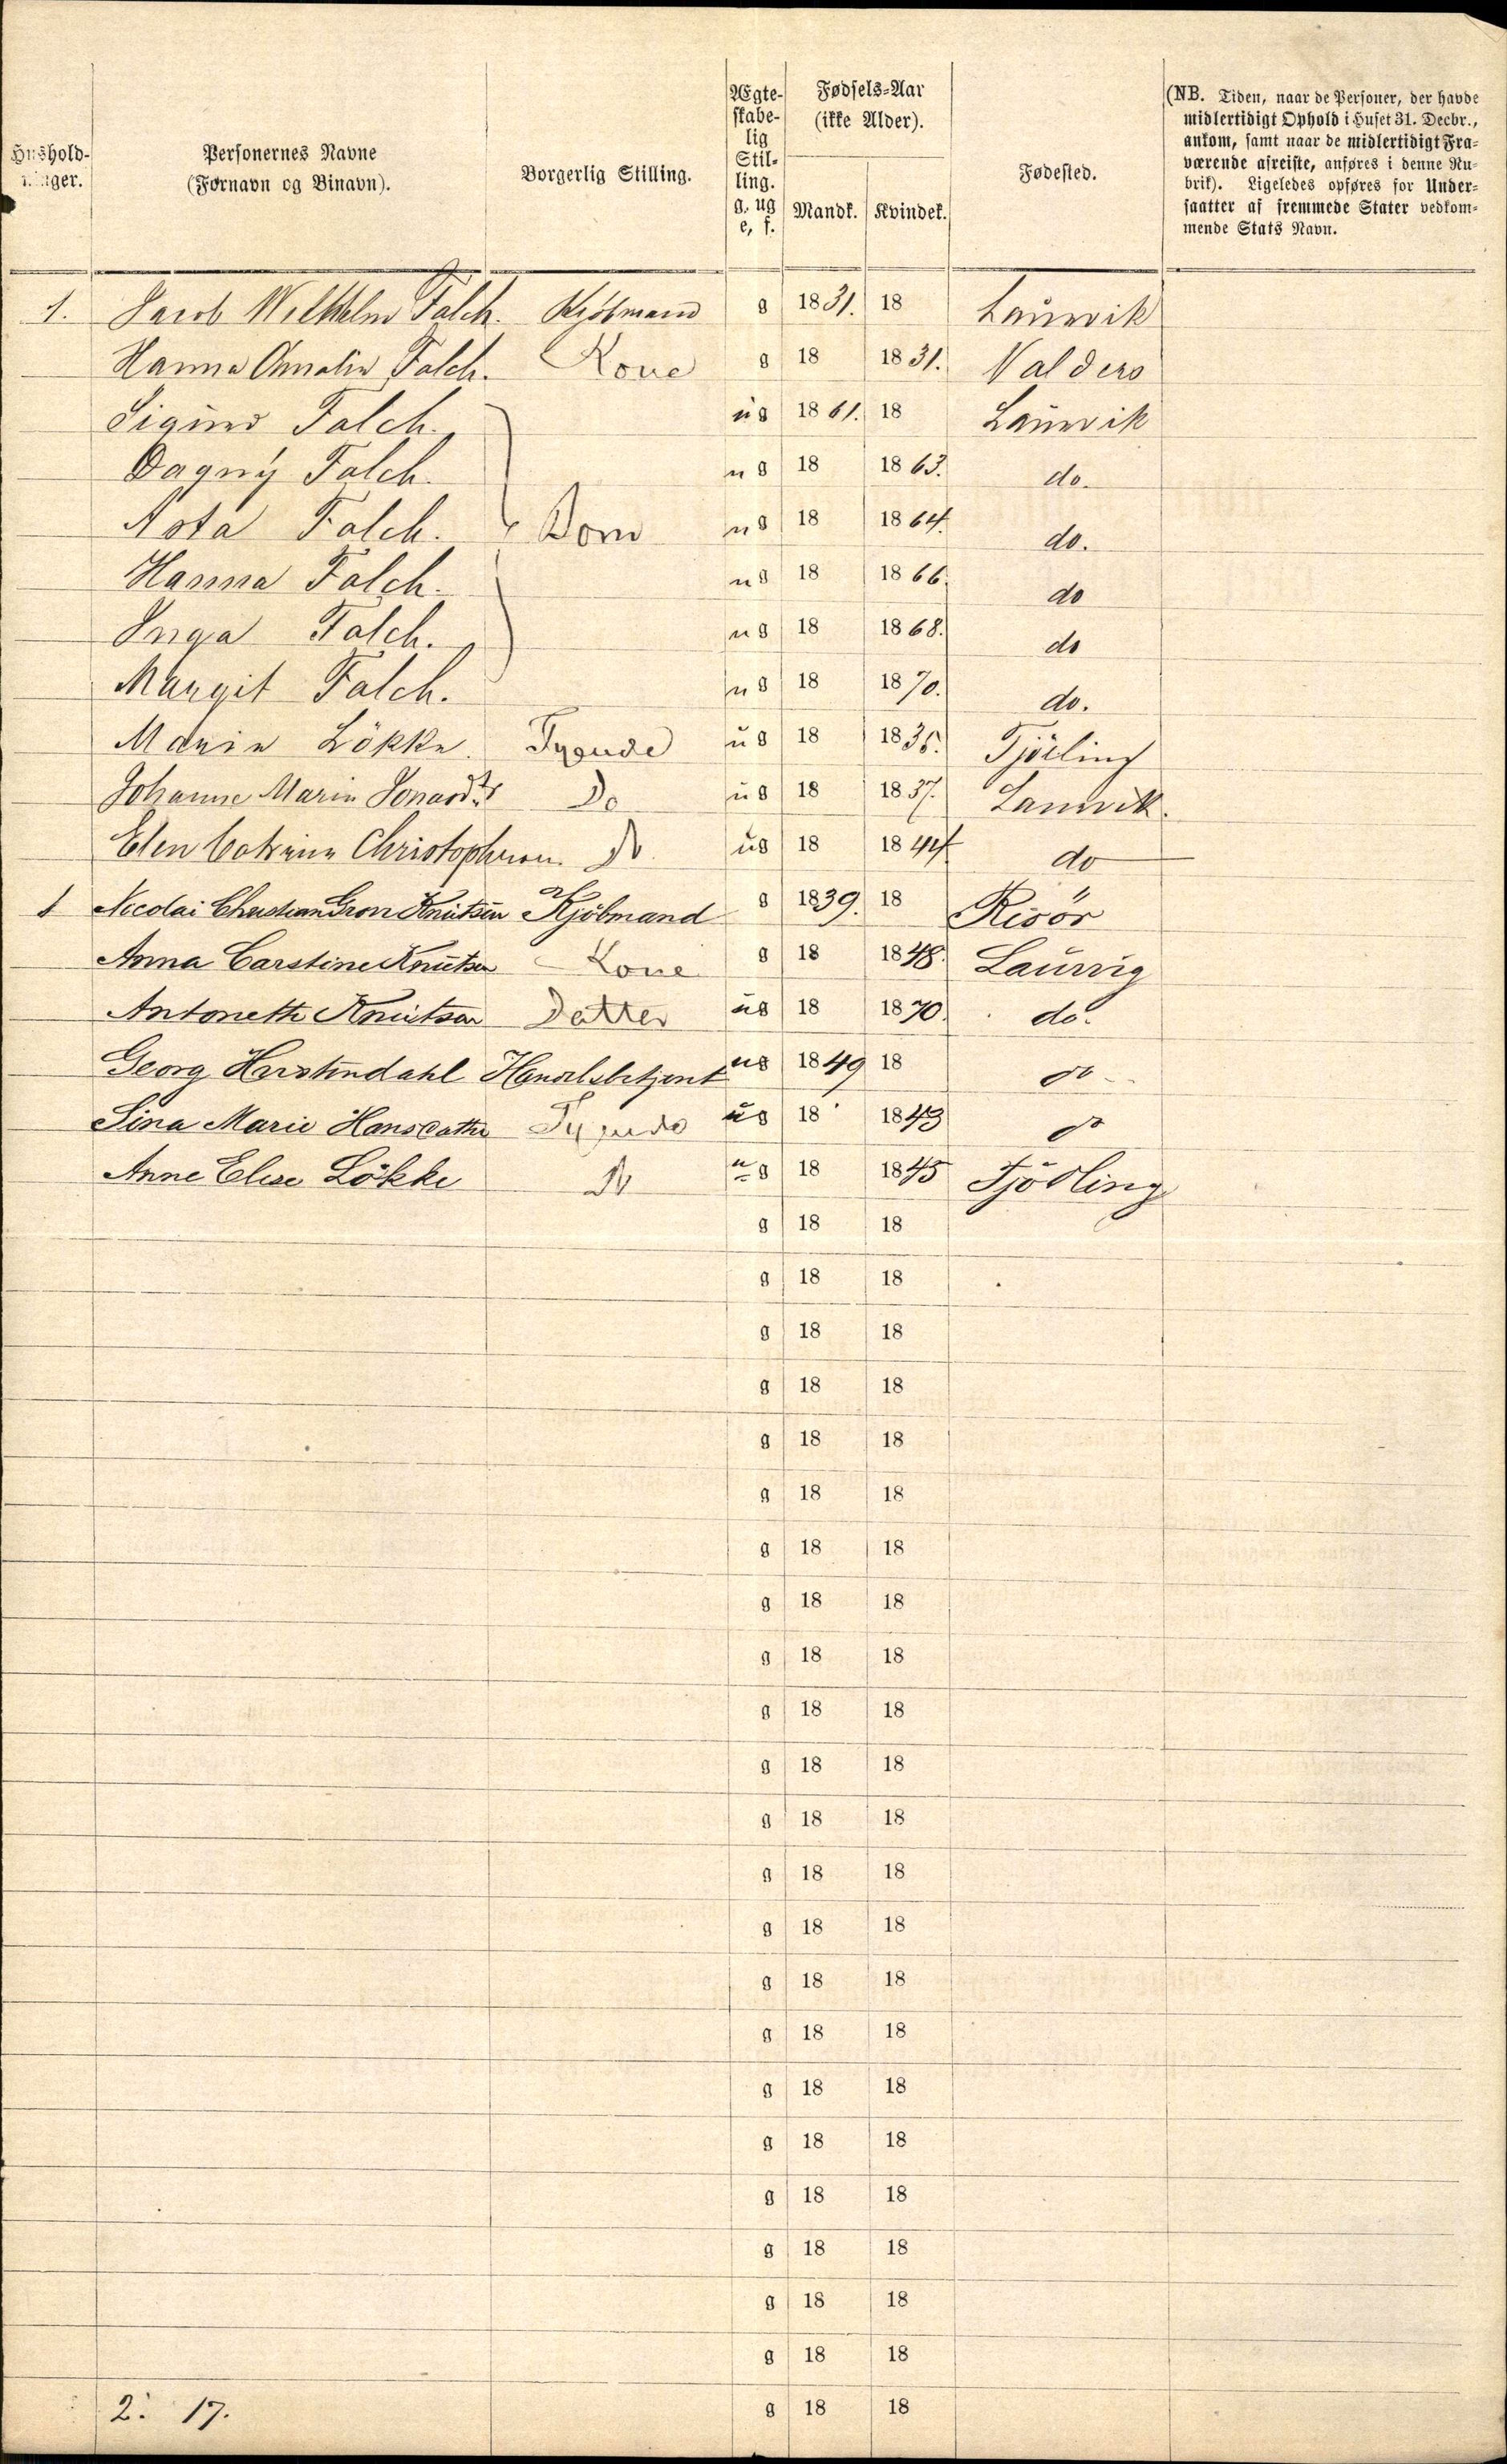 Hushold-
ninger.
Personernes Navne
(Fornavn og Binavn).
Borgerlig Stilling.
Ægte-
skabe-
lig
Stil-
ling.
g, ug
e, f.
Fødsels-Aar
(ikke Alder).
Mandk. Kvindek.
Fødested.
(NB. Tiden, naar de Personer, der havde
midlertidigt Ophold i Huset 31. Decbr.,
ankom, samt naar de midlertidigt Fra-
værende afreiste, anføres i denne Ru-
brik). Ligeledes opføres for Under-
saatter af fremmede Stater vedkom-
mende Stats Navn.
1. Jacob Wilhelm Falch. Kjöbmand g 1831. 18 Laurvik
Hanna Amalie Falch. Kone g 18 1831. Valders
Sigurd Falch. ug 1861. 18 Laurvik
Dagny Falch. ug 18 1863. do.
Asta Falch. Born ug 18 1864. do.
Hanna Falch. ug 18 1866. do
Inga Falch. ug 18 1868. do
Margit Falch. ug 18 1870. do.
Marie Lökke. Tyende ug 18 1835. Tjölling
Johanne Marie Do ug 18 1837. Laurvik.
Elen Catrine Christophersen Do ug 18 1844 do
1 Nicolai Christian Gron Knutsen Kjöbmand g 1839. 18 Risör
Anna Carstine Knutsen Kone g 18 1848. Laurvig
Antonette Knutsen Datter ug 18 1870. do.
Georg Handelsbetjent ug 1849 18 do
Sina Marie Hansdatter Tyende ug 18 1843 do
Anne Elise Lökke Do ug 18 1845 Tjölling
g 18 18
g 18 18
g 18 18
g 18 18
g 18 18
g 18 18
g 18 18
g 18 18
g 18 18
g 18 18
g 18 18
g 18 18
g 18 18
g 18 18
g 18 18
g 18 18
g 18 18
g 18 18
g 18 18
g 18 18
g 18 18
g 18 18
2. 17. g 18 18